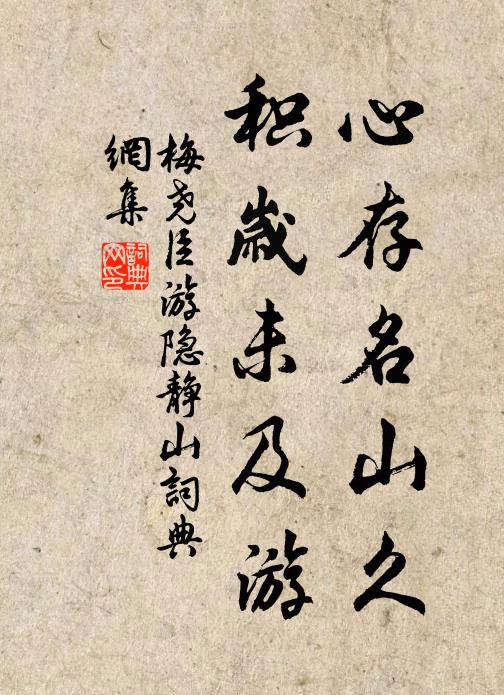 心存名山久
积岁未及游
梅尧臣游隐静山詞典
網集
詞典
网印